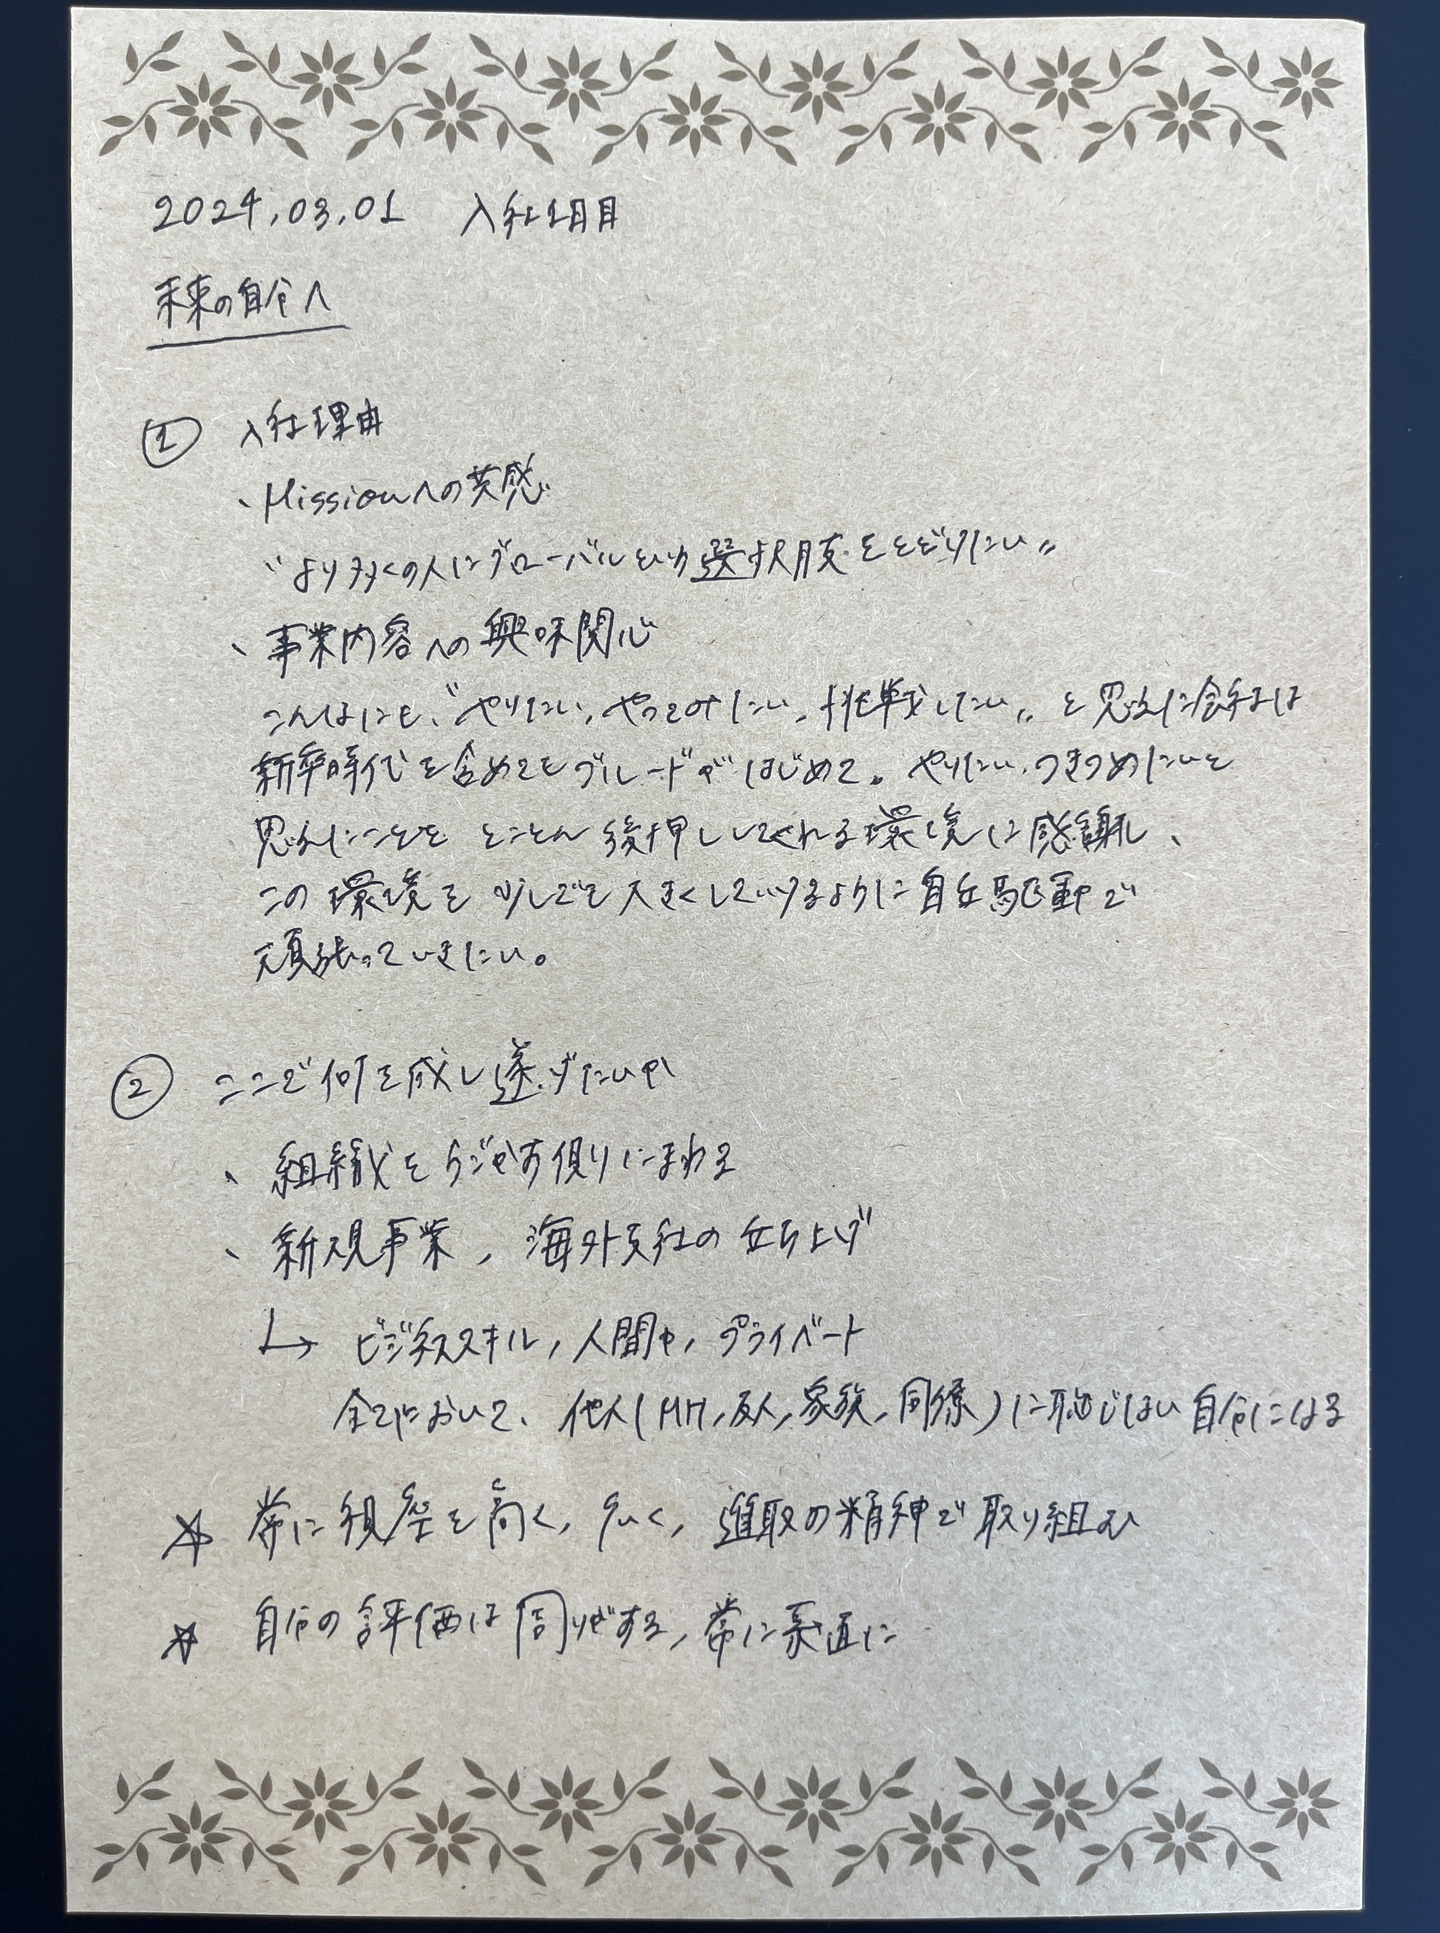 2024.03.01 入社1日目
未来の自分へ
① 入社理由
、Missionへの共感
“より多くの人にグローバルという選択肢をとどけたい„
、事業内容への興味関心
こんなにも、“やりたい、やってみたい、挑戦したい„と思えた会社は
新卒時代を含めてもブルードがはじめて。やりたい、つきつめたいと
思えたことを とことん後押ししてくれる環境に感謝し、
この環境を少しでも大きくしていけるように自立駆動で
頑張っていきたい。
② ここで何を成し遂げたいか
、組織をうごかす側にまわる
、新規事業、海外支社の立ち上げ
↳ ビジネススキル、人間力、プライベート
全てにおいて、他人(MH、友人、家族、同僚)に恥じない自分になる
☆ 常に視座を高く、広く、進取の精神で取り組む
☆ 自分の評価は周りがする、常に素直に